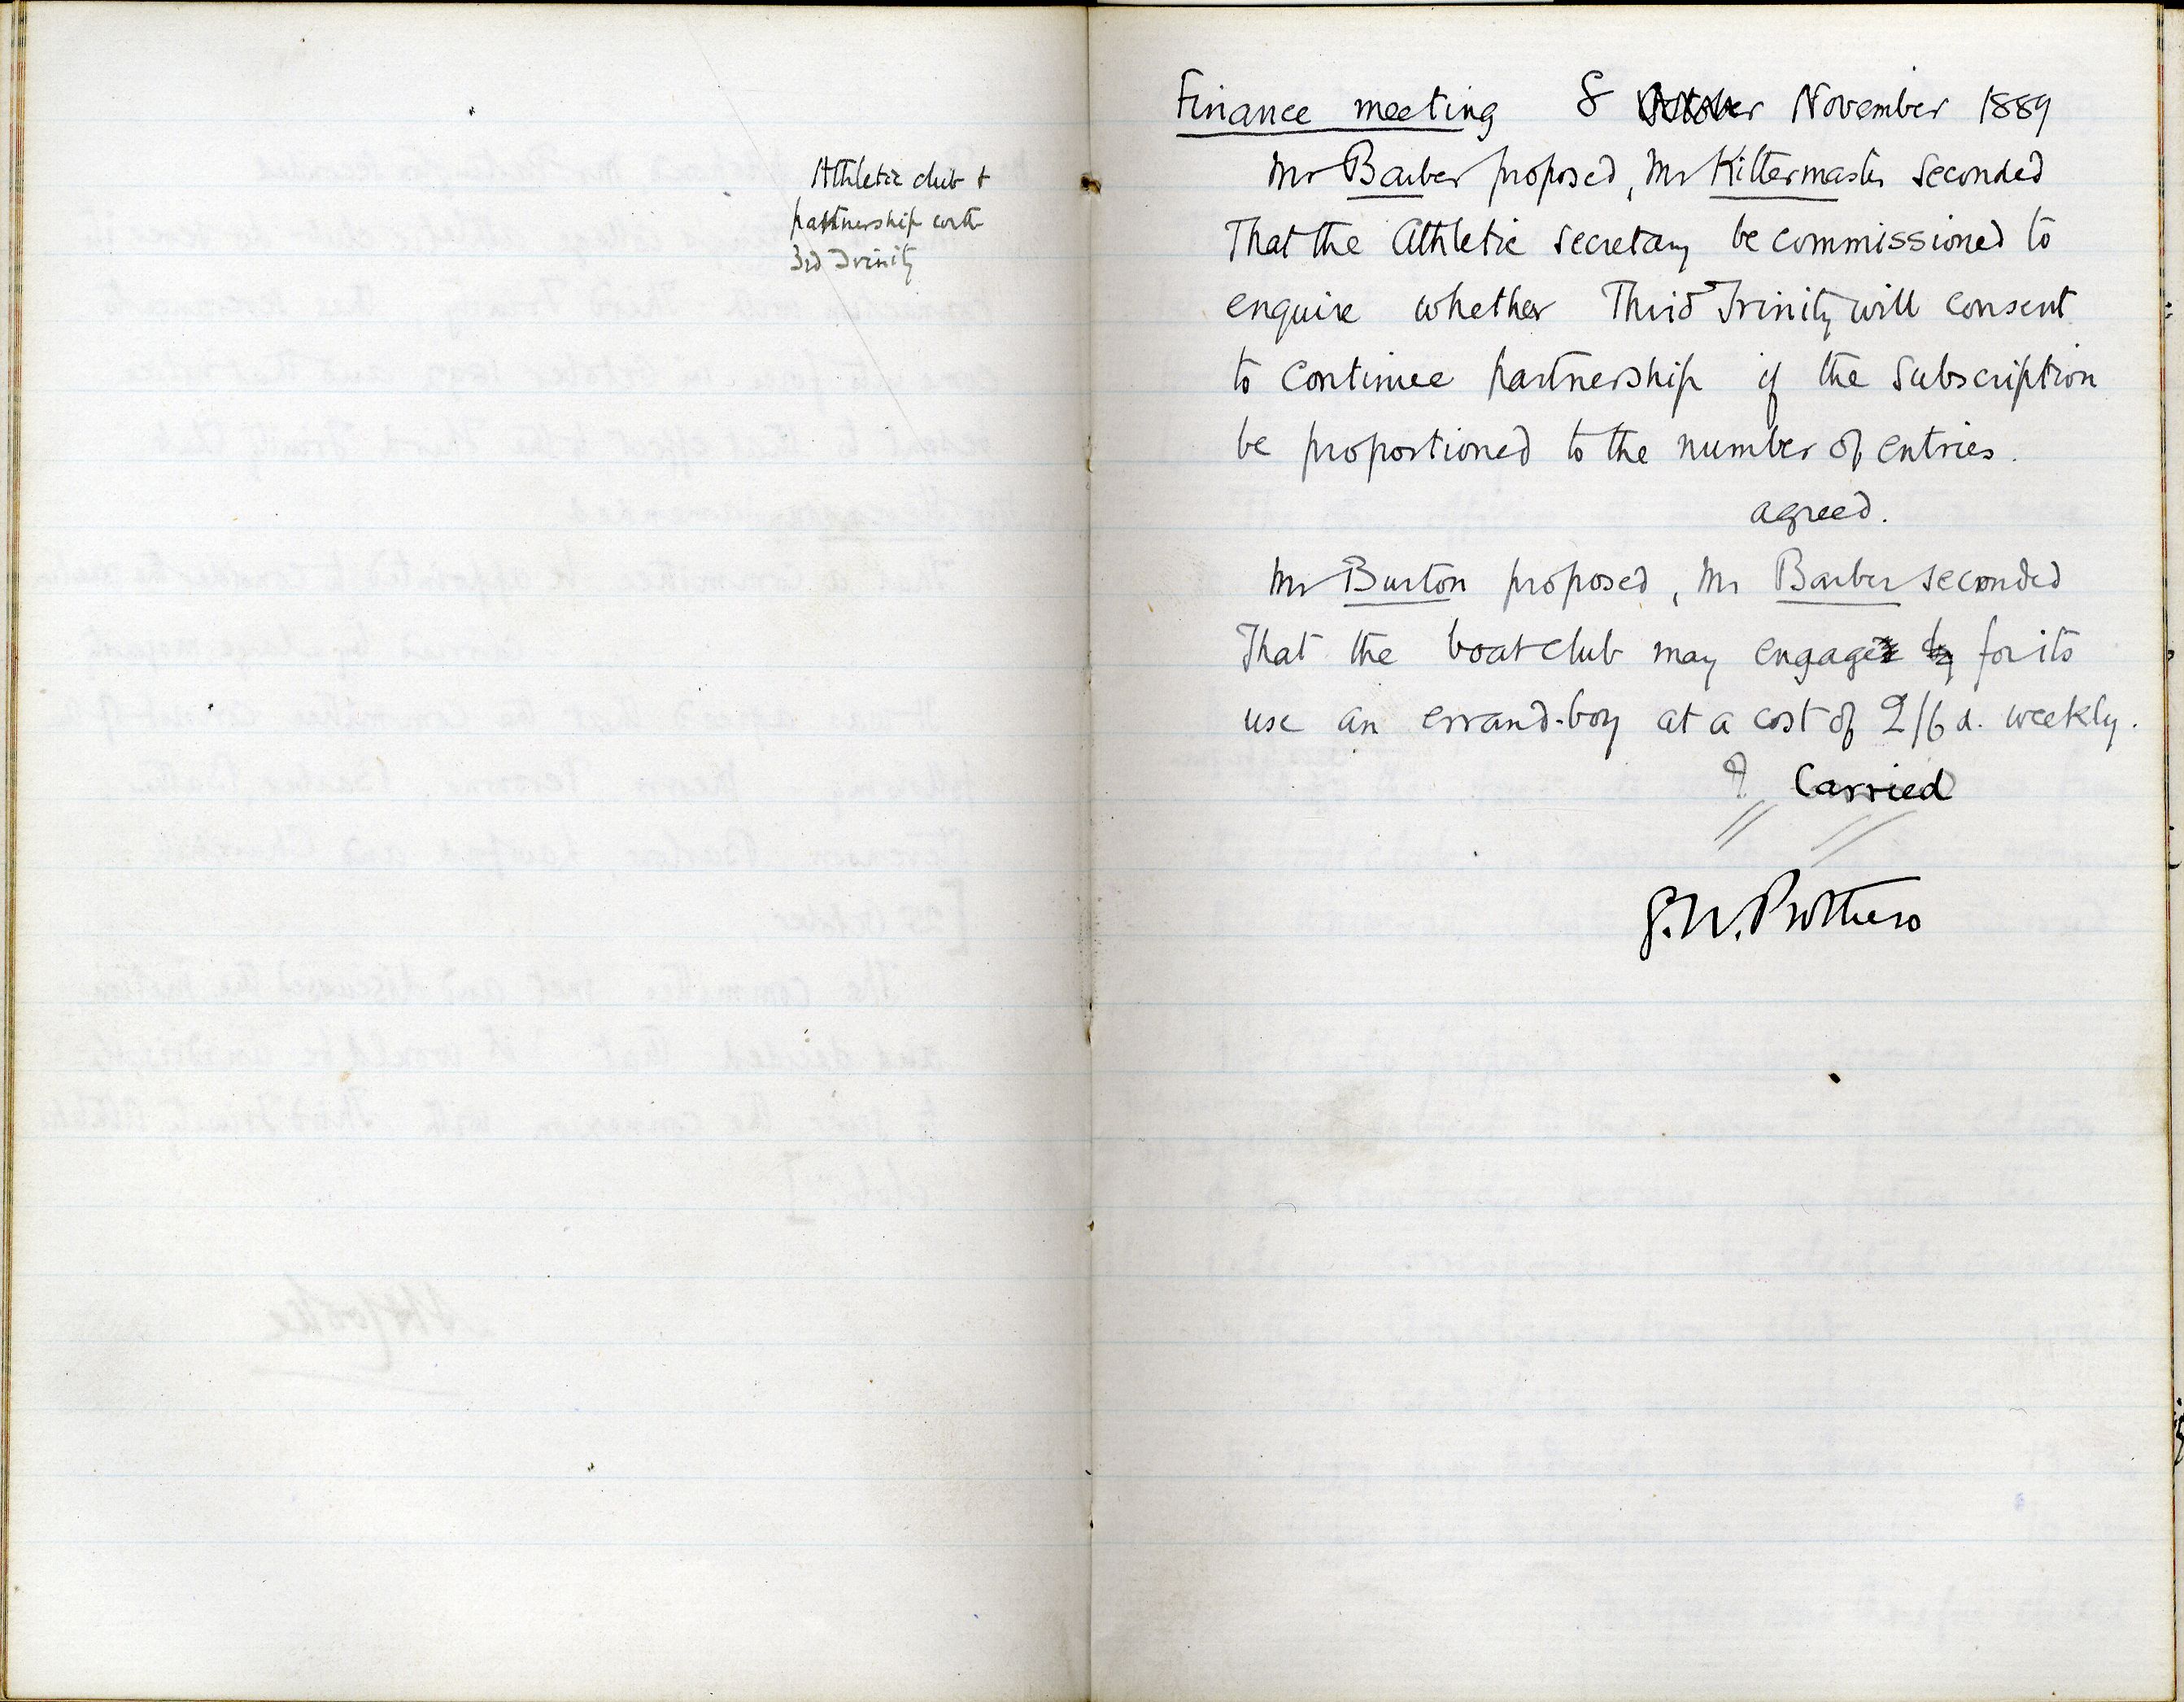 Athletic club &
partnership with
3rd Trinity
Finance meeting 8 October November 1889
Mr Barber proposed, Mr Kittermaster seconded
That the Athletic secretary be commissioned to
enquire whether Third Trinity will consent
to continue partnership if the subscription
be proportioned to the number of entries.
agreed.
Mr Burton proposed, Mr Barber seconded
That the boat club may engage for its
use an errand-boy at a cost of 2/6 d. weekly.
Carried
G.W. Prothero